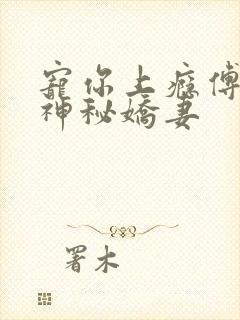 寵你上癮傅
神秘嬌妻
署木